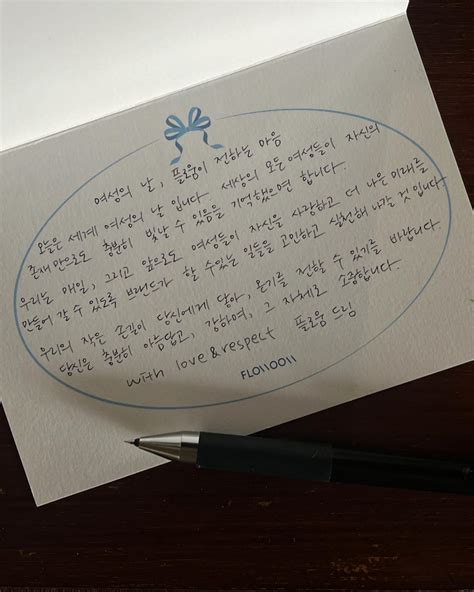 여성의 날, 플로움이 전하는 마음
오늘은 세계 여성의 날 입니다. 세상의 모든 여성들이 자신의
존재만으로도 충분히 빛나 수 있음을 기억했으면 합니다.
우리는 매일, 그리고 앞으로도 여성들이 자신을 사랑하고 더 나은 미래를
만들어 갈 수 있도록 브랜드가 할 수 있는 일들을 고민하고 실천해 나갈 것 입니다.
우리의 작은 손길이 당신에게 닿아, 온기를 전할 수 있기를 바랍니다.
당신은 충분히 아름답고, 강하며, 그 자체로 소중합니다.
with love & respect 플로움 드림
FLOIIOOII